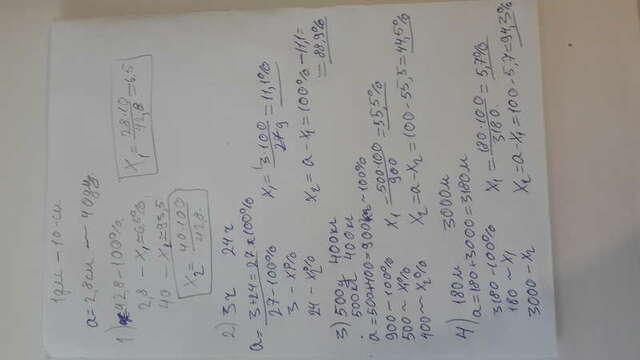 1дм - 10 см
a = 2,8 см — 40 дм
1) 42,8 - 100%
2,8 - X₁ ≈ 6,5%
40 - X₁ ≈ 93,5
X₁ = 28·10 / 42,8 = 6,5
X₂ = 40·100 / 42,8
2) 3г 24г
a = 3+24 = 27 100%
27 - 100%
3 - x₁%
24 - x₂%
X₁ = 3·100 / 27 = 11,1%
X₂ = a - X₁ = 100% - 11,1 = 88,9%
3) 500кг 400кг
500кг 400кг
a = 500+400 = 900кг ~ 100%
900 - 100%
500 ~ X₁%
400 ~ X₂%
X₁ - 500·100 / 900 = 55,5%
X₂ = a - X₂ = 100 - 55,5 = 44,5%
4) 180м 3000м
a = 180 + 3000 = 3180м
3180 - 100%
180 ~ X₁
3000 - X₂
X₁ = 180·100 / 3180 = 5,7%
X₂ = a - X₁ = 100 - 5,7 = 94,3%